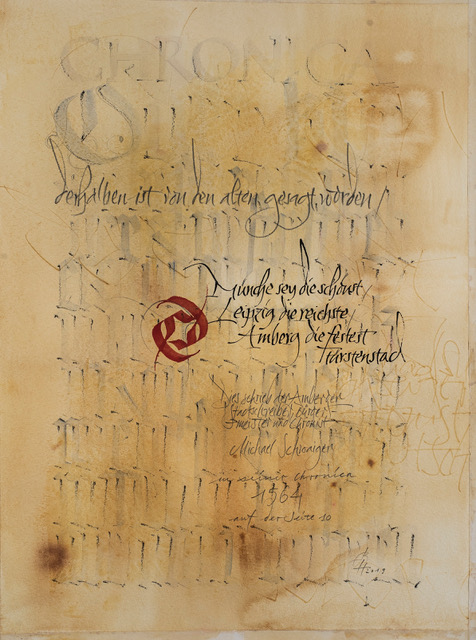 CHRONICA
derhalben ist von den alten gesagt worden
Munche sey die schönst
Leipzig die reichste
Amberg die festest
Fürstenstad
Dies schrieb der Amberger
Stadtschreiber, Bürger
meister und Chronist
Michael Schwaiger
in seiner Chronica
1564
auf der Seite 10
2019